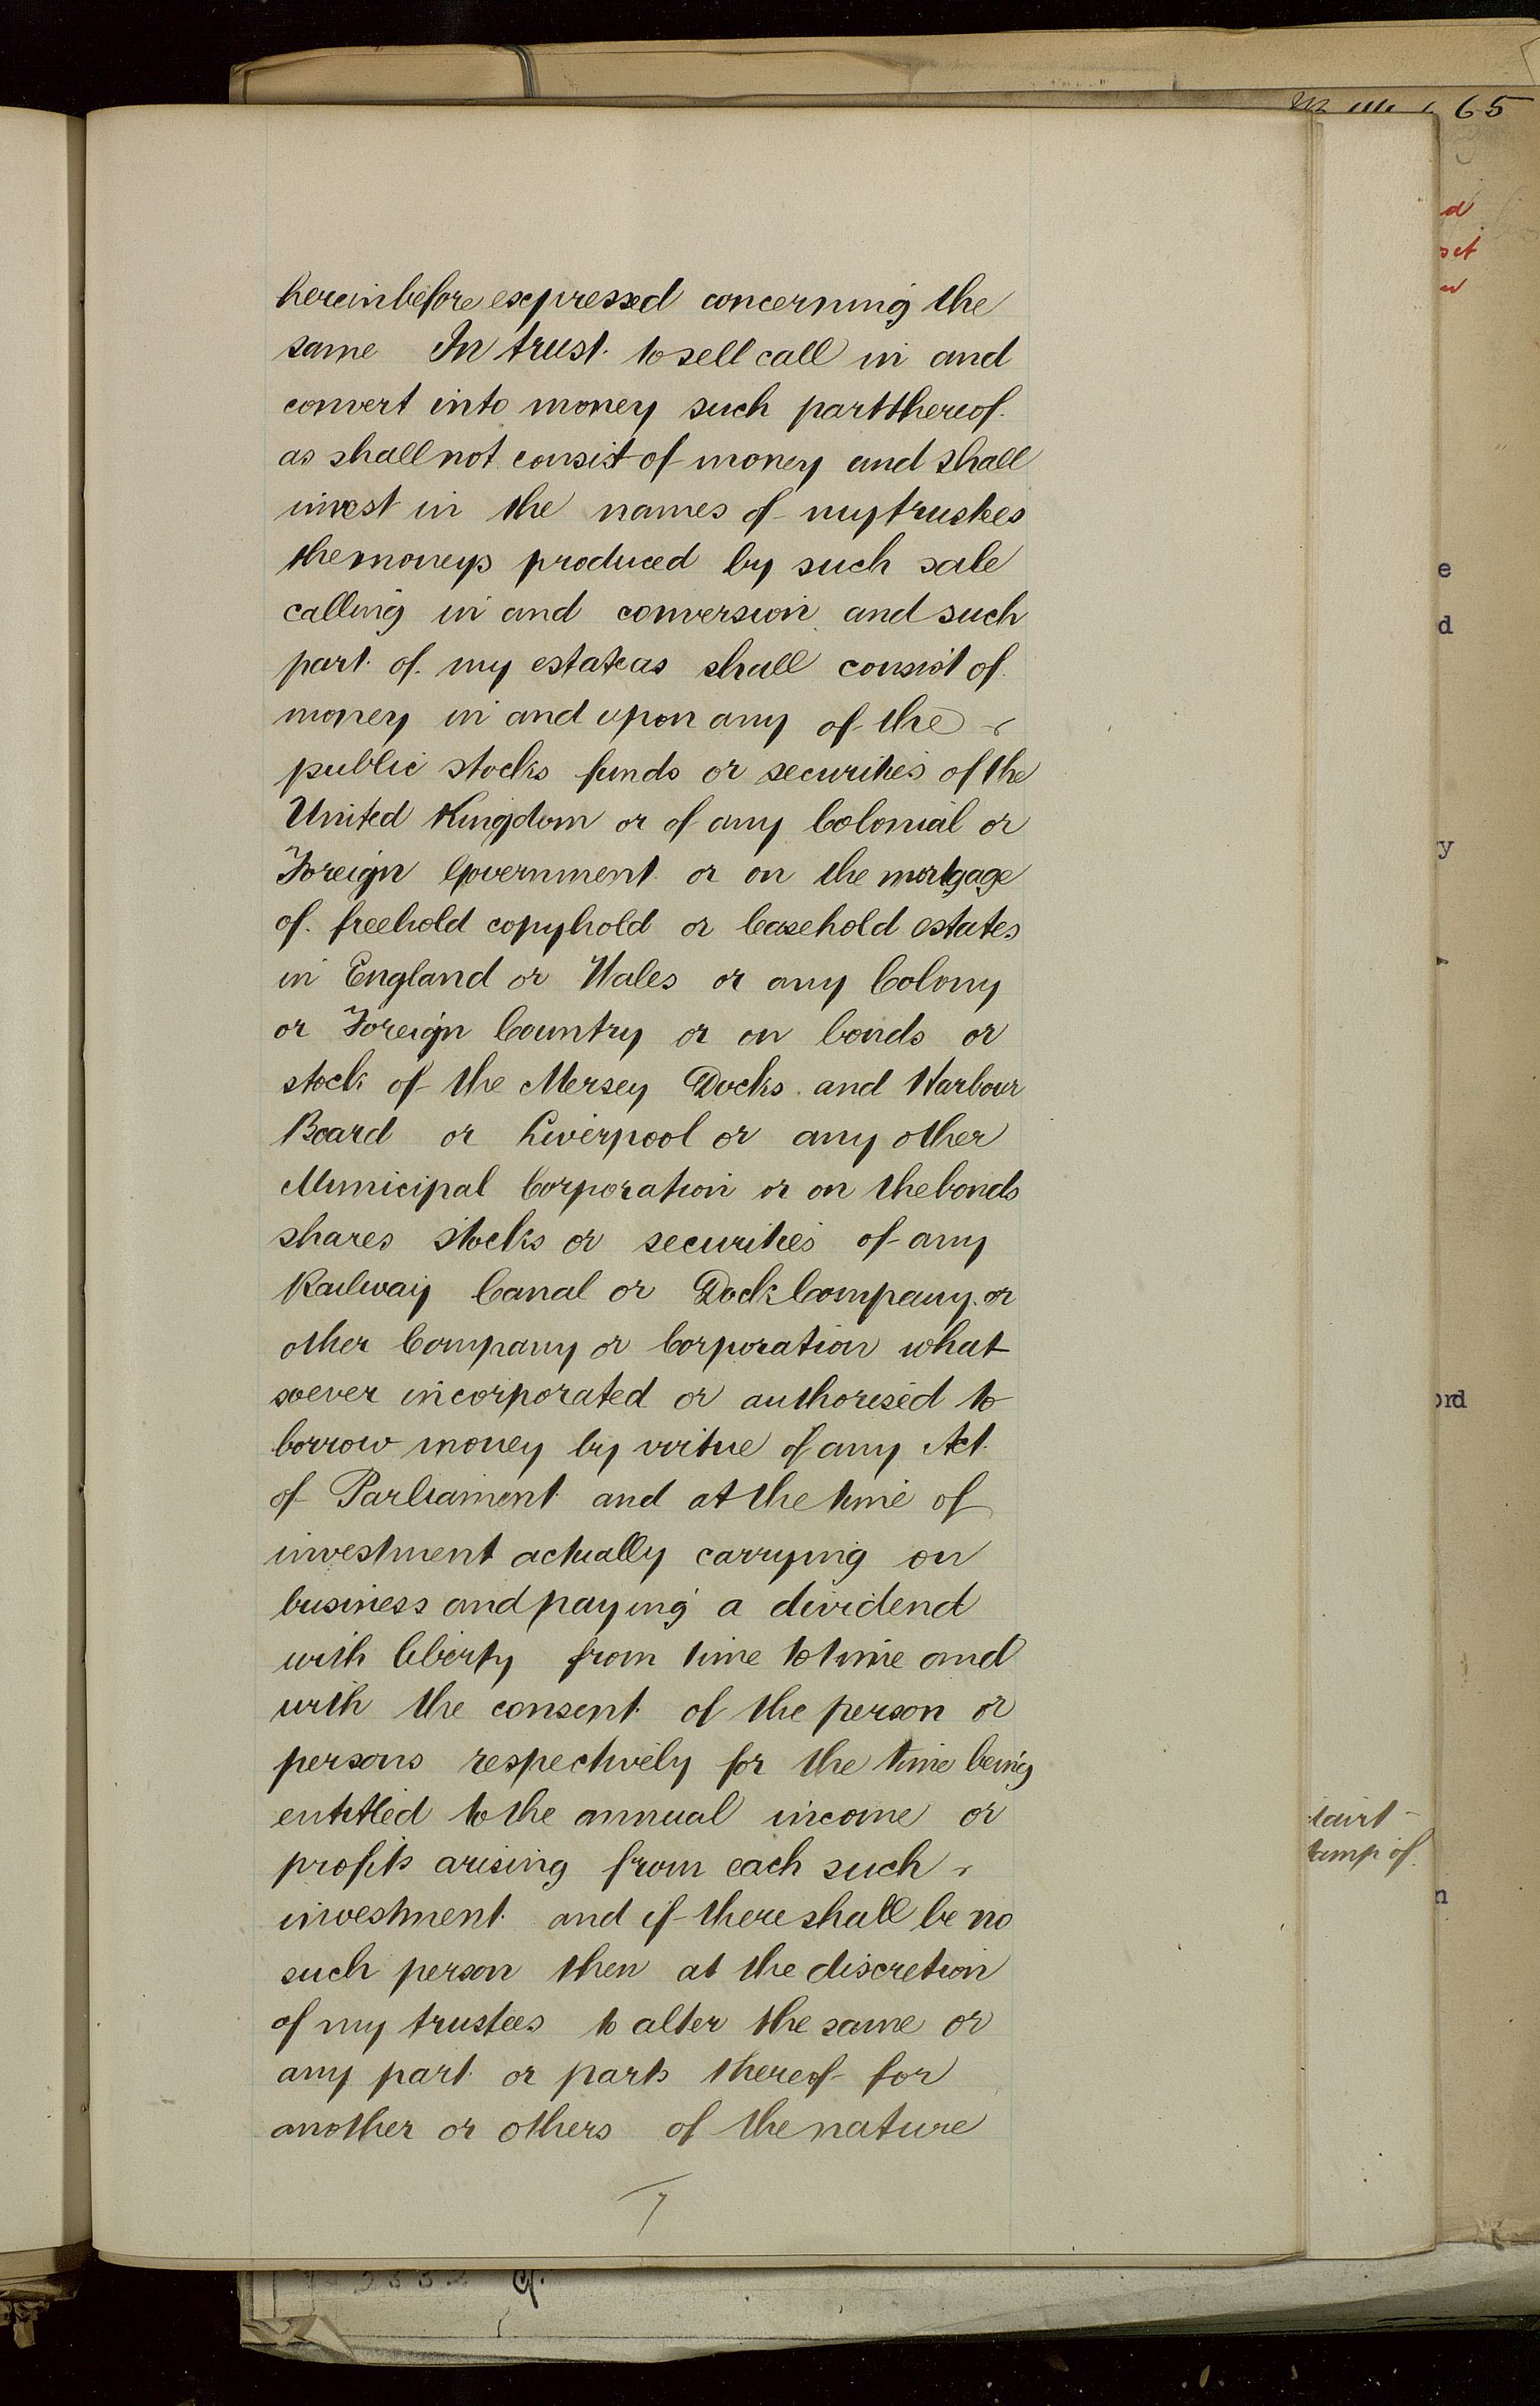 65
hereinbefore expressed concerning the
same In trust to sell call in and
convert into money such part thereof
as shall not consist of money and shall
invest in the names of my trustees
the moneys produced by such sale
calling in and conversion and such
part of my estate as shall consist of
money in and upon any of the
public stocks funds or securities of the
United Kingdom or of any Colonial or
Foreign Government or on the mortgage
of freehold copyhold or leasehold estates
in England or Wales or any Colony
or Foreign Country or on bonds or
stock of the Mersey Docks and Harbour
Board or Liverpool or any other
Municipal Corporation or on the bonds
shares stocks or securities of any
Railway Canal or Dock Company or
other Company or Corporation what
soever incorporated or authorised to
borrow money by virtue of any Act
of Parliament and at the time of
investment actually carrying on
business and paying a dividend
with liberty from time to time and
with the consent of the person or
persons respectively for the time being
entitled to the annual income or
profits arising from each such
investment and if there shall be no
such person then at the discretion
of my trustees to alter the same or
any part or parts thereof for
another or others of the nature
7